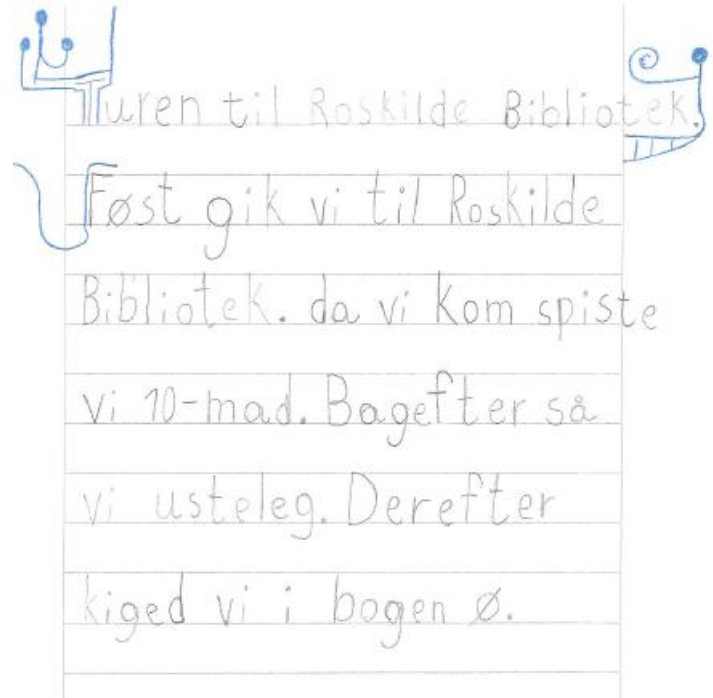 Turen til Roskilde Bibliotek.
Føst gik vi til Roskilde
Bibliotek. da vi kom spiste
vi 10-mad. Bagefter så
vi usteleg. Derefter
kiged vi i bogen Ø.